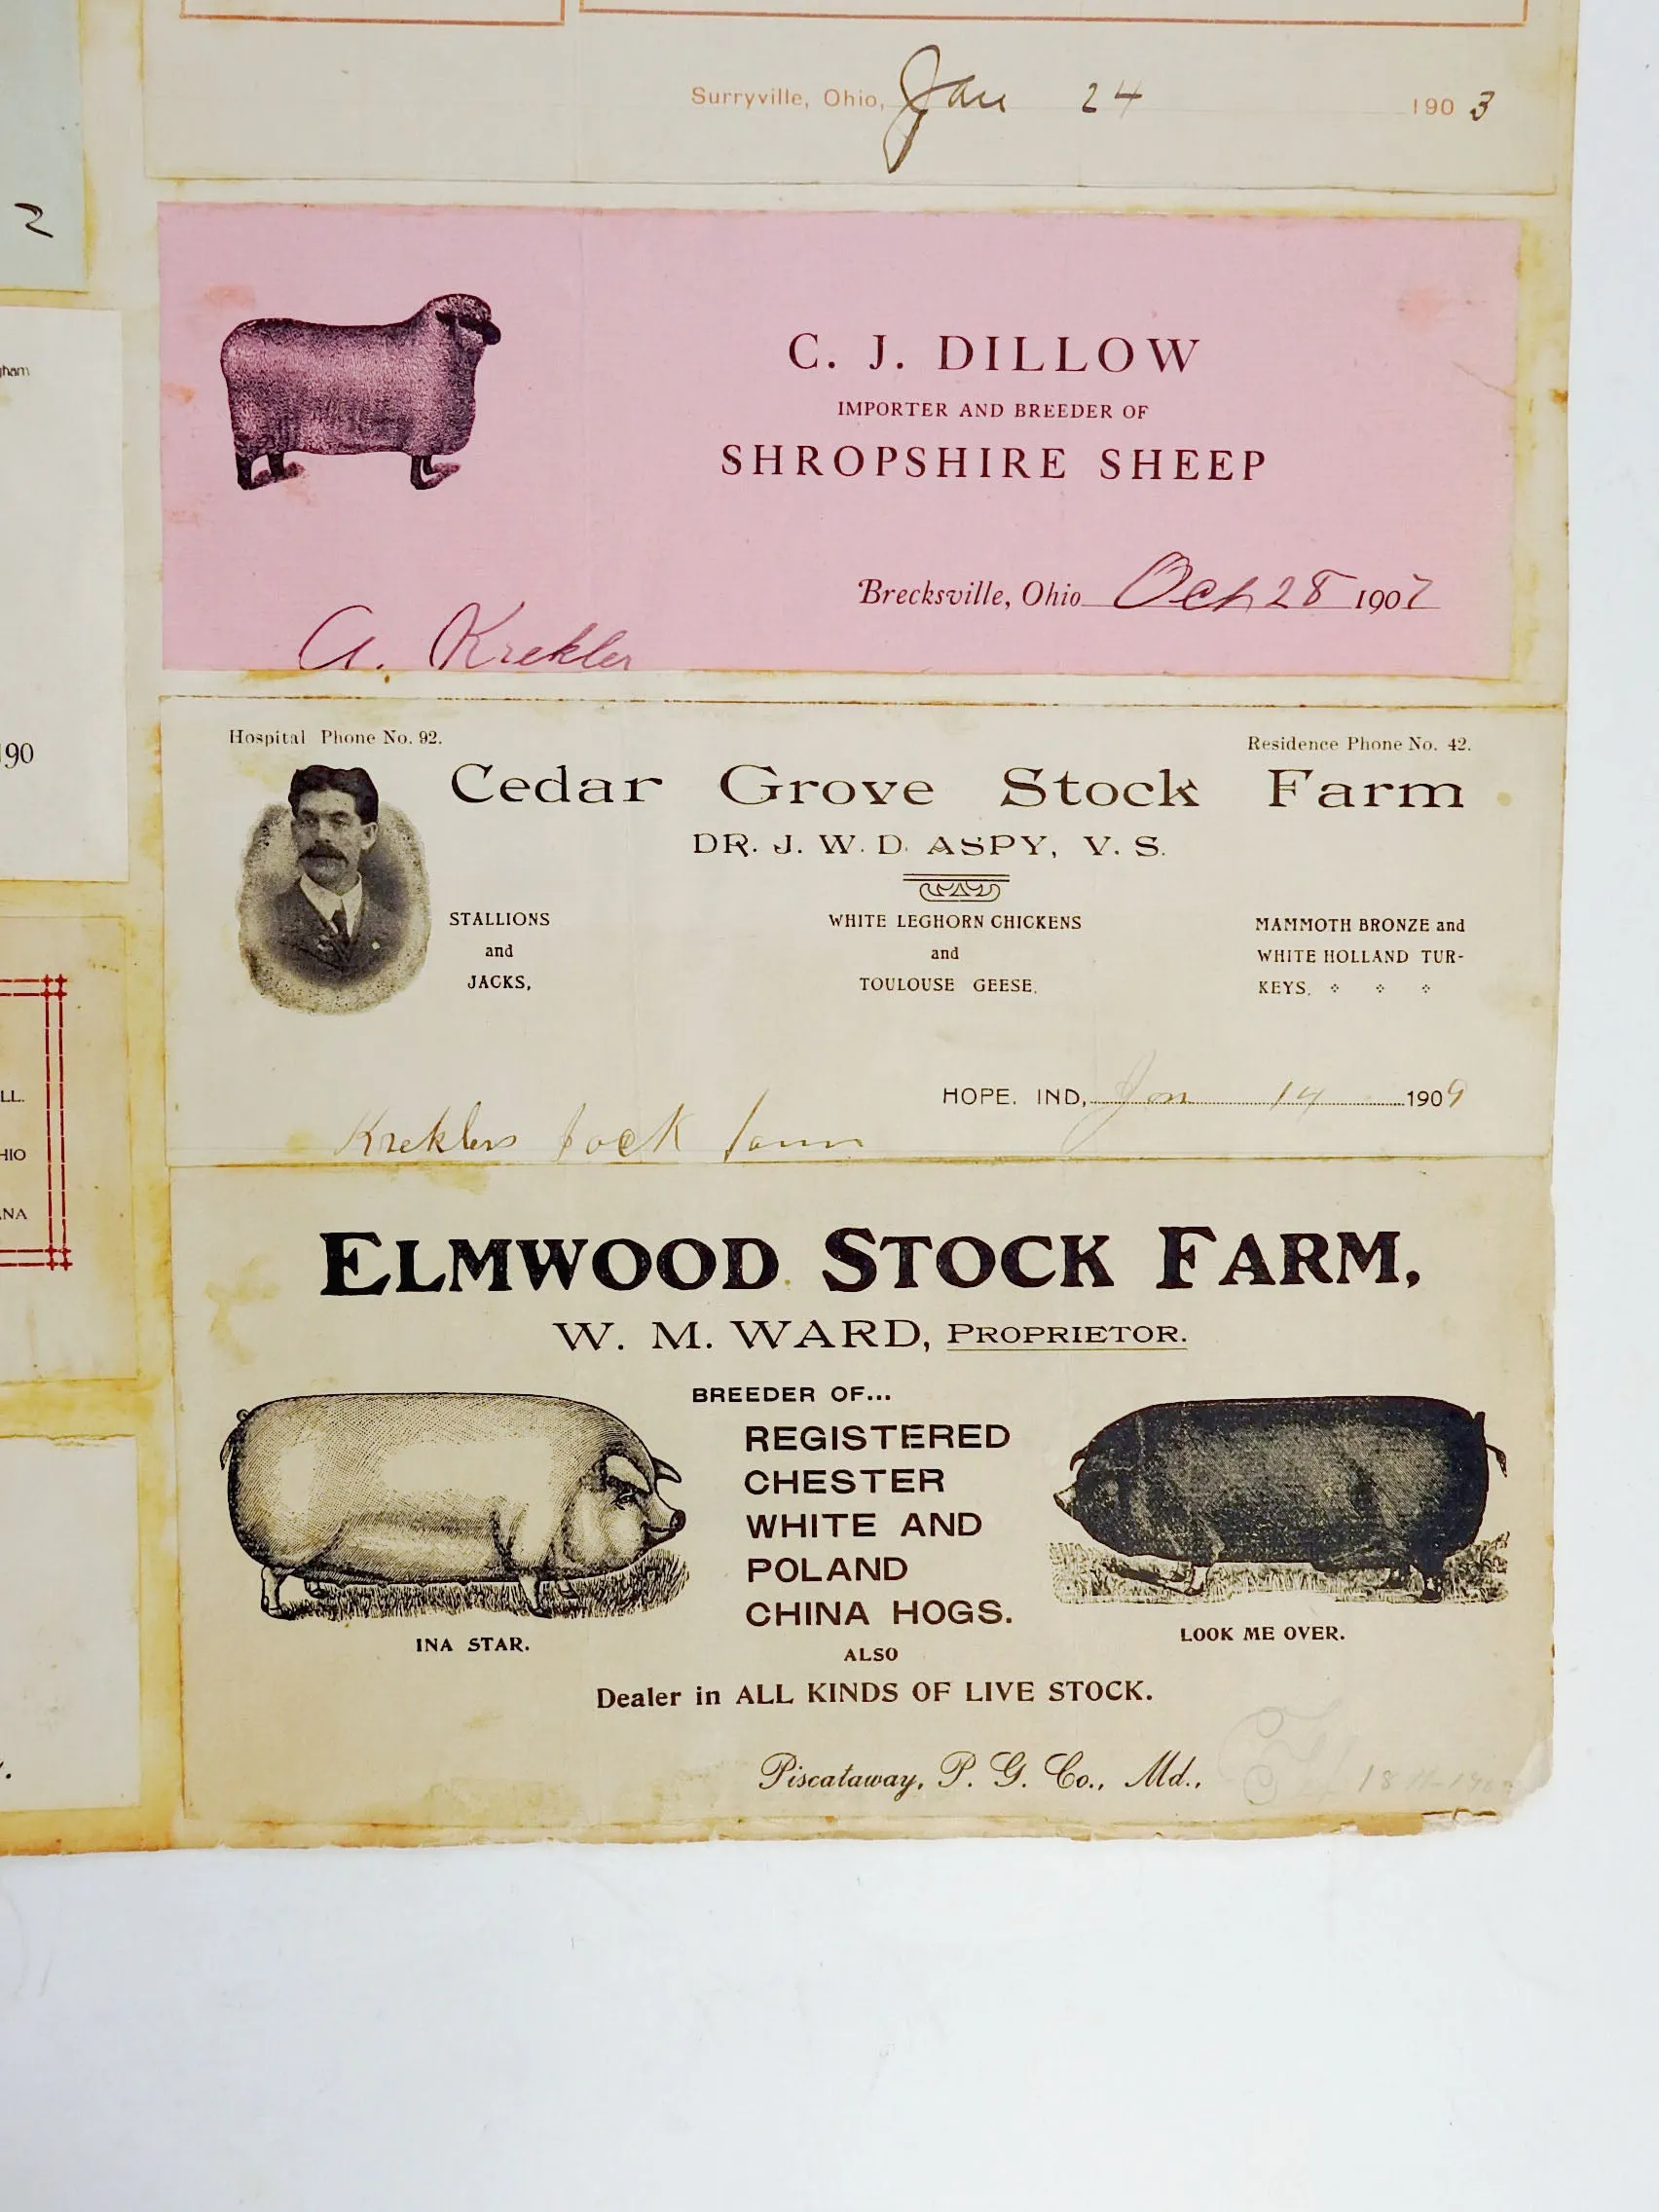 Surryville, Ohio, Jan 24 1903
2
gham
190
LL.
HIO
NA
C. J. DILLOW
IMPORTER AND BREEDER OF
SHROPSHIRE SHEEP
Brecksville, Ohio Oct 28 1902
A. Krekler
Hospital Phone No. 92.
Residence Phone No. 42.
Cedar Grove Stock Farm
DR. J. W. D. ASPY, V. S.
STALLIONS
and
JACKS,
WHITE LEGHORN CHICKENS
and
TOULOUSE GEESE.
MAMMOTH BRONZE and
WHITE HOLLAND TUR-
KEYS.
HOPE. IND, Jan 14 1909
Kreklers
ELMWOOD STOCK FARM,
W. M. WARD, PROPRIETOR.
BREEDER OF...
REGISTERED
CHESTER
WHITE AND
POLAND
CHINA HOGS.
INA STAR.
LOOK ME OVER.
ALSO
Dealer in ALL KINDS OF LIVE STOCK.
Piscataway, P. G. Co., Md.,